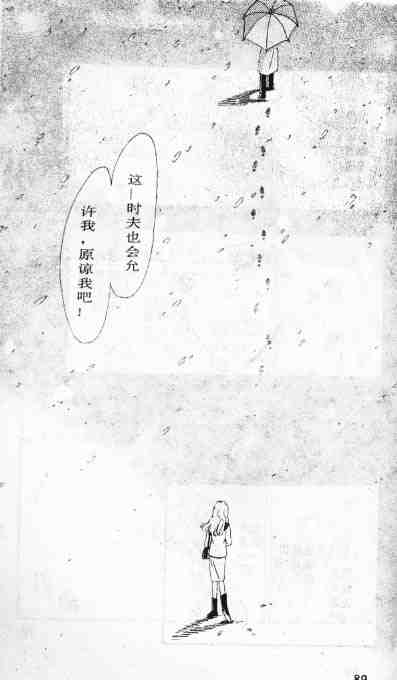 这一时夫也会允
许我，原谅我吧！
89